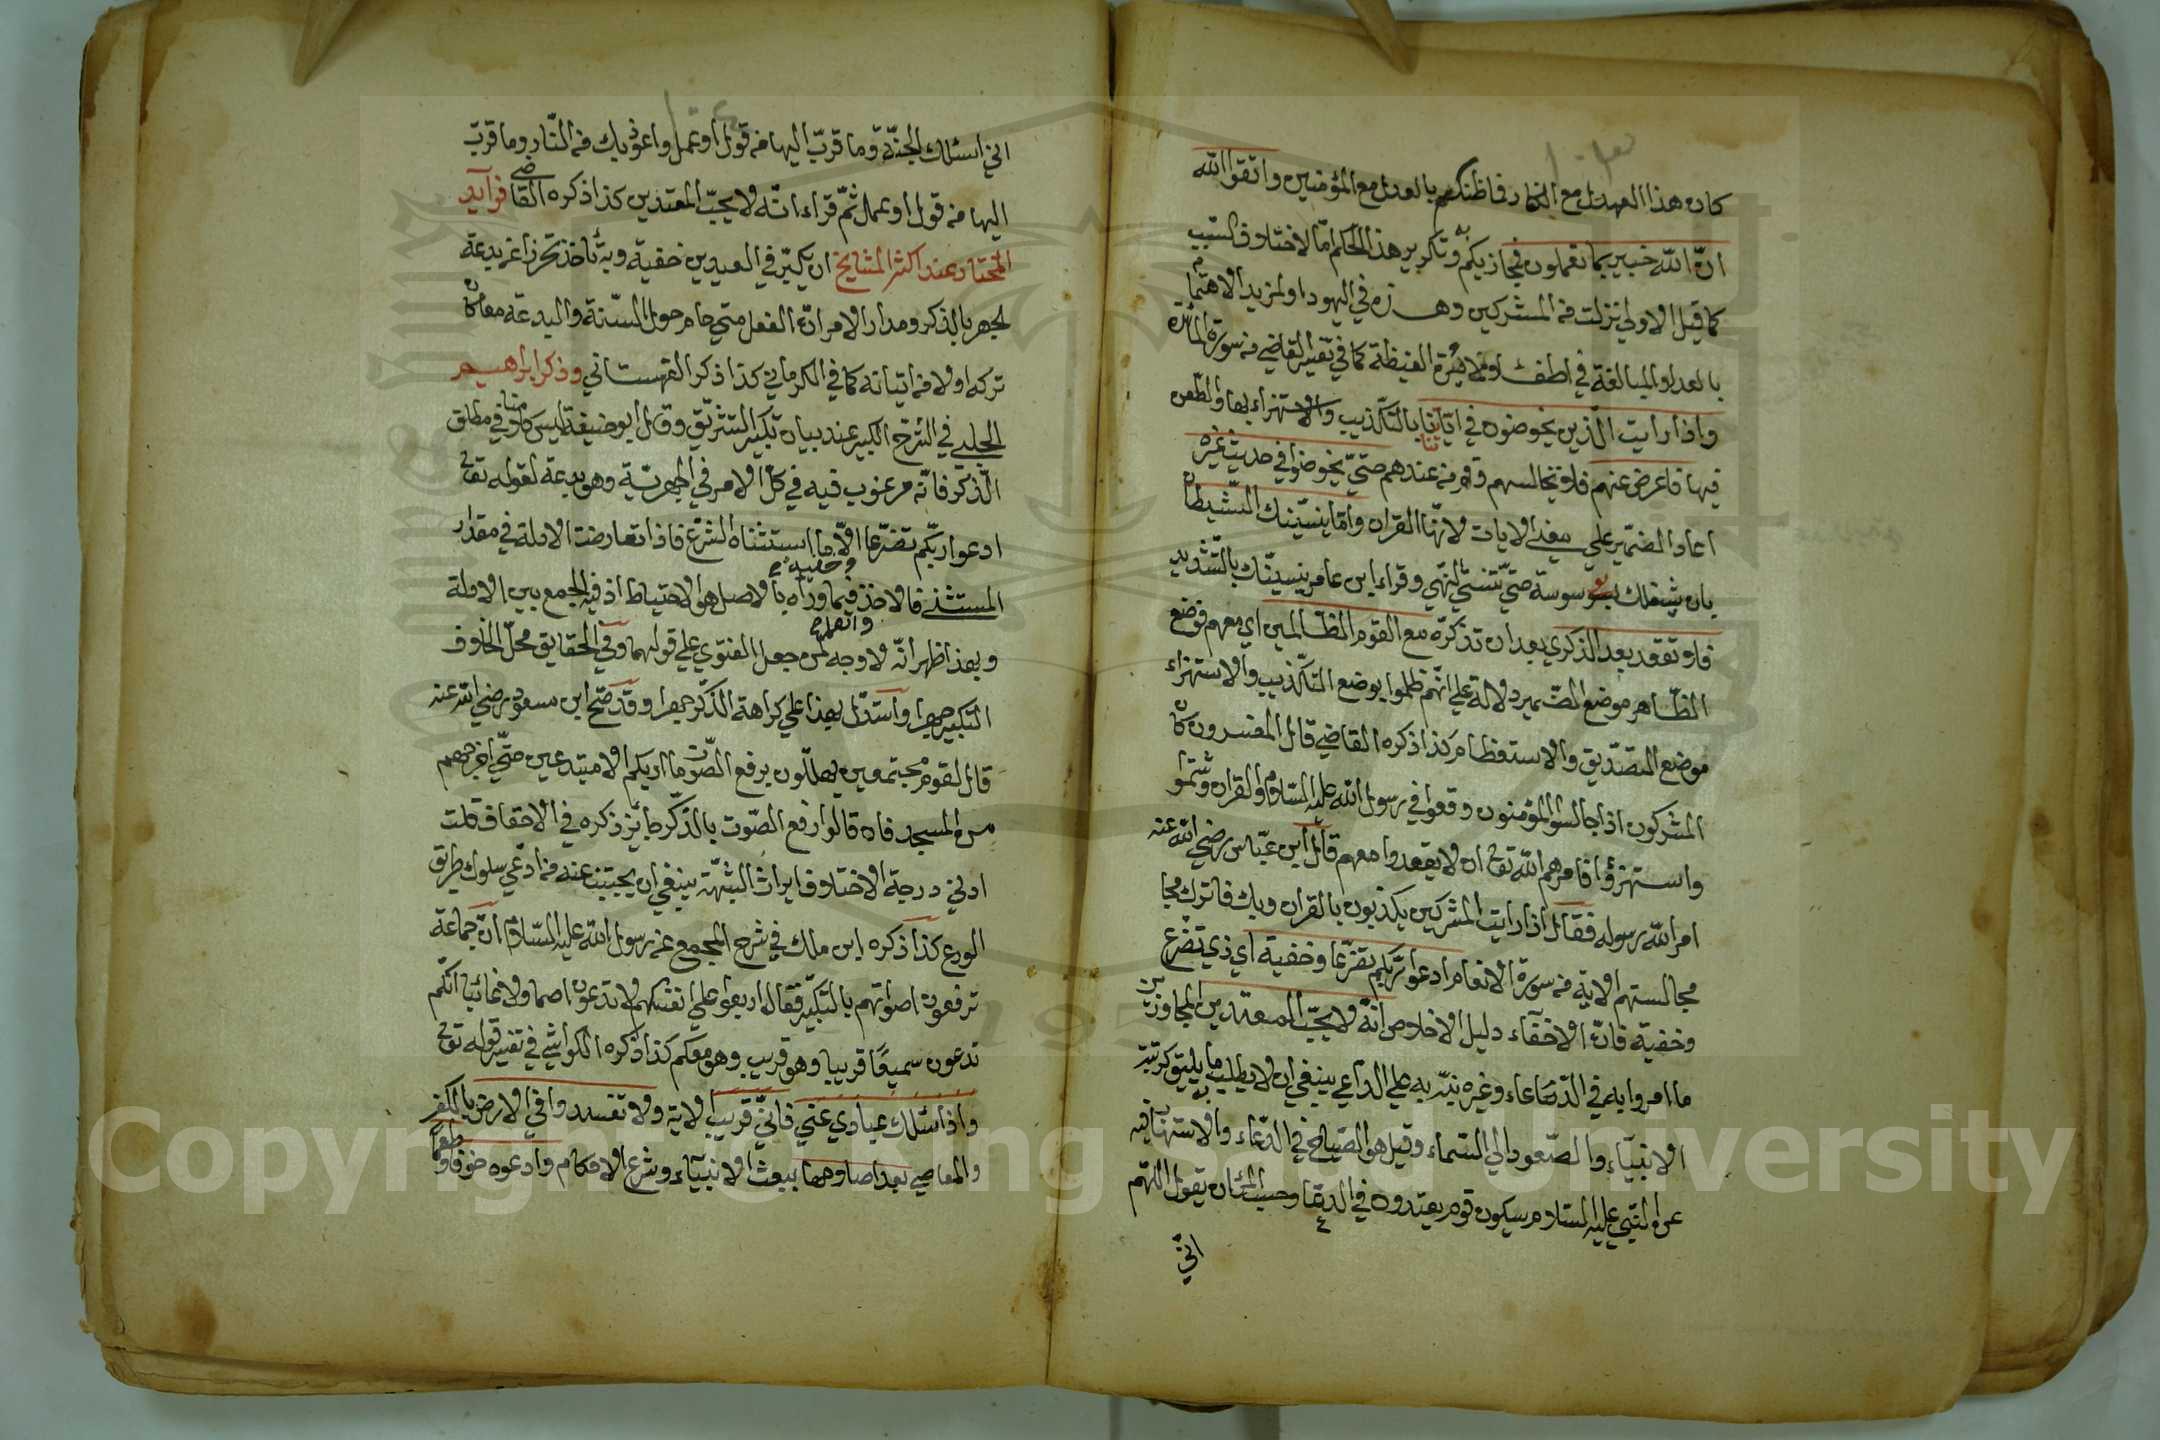 كان هذا العدل مع الكفار فاظنكم بالعدل مع المؤمنين واتقوا الله
ان الله خبير بما تعملون فيجازيكم به وتكرير هذا الحكم اما لاختلاف السبب
كما قيل الاولى نزلت في المشركين وهذه في اليهود او لمزيد الاهتمام
بالعدل والمبالغة في اطفاء نائرة الغيظة كما في تفسير القاضي في سورة المائدة
واذا رايت الذين يخوضون في اياتنا بالتكذيب والاستهزاء بها والطعن
فيها فاعرض عنهم فلا تجالسهم وقم من عندهم حتى يخوضوا في حديث غيره
اعاد الضمير على معنى الايات لانها القران واما ينسينك الشيطان
بان يشغلك بوسوسة حتى تنسى النهي وقراء ابن عامر ينسينك بالتشديد
فلا تقعد بعد الذكرى بعد ان تذكره مع القوم الظالمين اي معهم فوضع
الظاهر موضع الضمير دلالة على انهم ظلموا بوضع التكذيب والاستهزاء
موضع التصديق والاستعظام كذا ذكره القاضي قال المفسرون كان
المشركون اذا جالسوا المؤمنون وقعوا في رسول الله عليه السلام والقران وشتموا
واستهزؤا فامرهم الله تعالى ان لا يقعدوا معهم قال ابن عباس رضي الله عنه
امر الله رسوله فقال اذا رايت المشركين يكذبون بالقران وبك فاترك مجا
مجالستهم الاية في سورة الانعام ادعوا ربكم تضرعا وخفية اي ذي تضرع
وخفية فان الاخفاء دليل الاخلاص انه لا يحب المعتدين المجاوزين
ما امروا به في الدعاء وغيره نبه به على الداعي ينبغي ان لا يطلب ما يليق كرتبة
الانبياء والصعود الى السماء وقيل هو الصياح في الدعاء والاسهاب فيه
عن النبي عليه السلام سيكون قوم يعتدون في الدعاء وحسب المرء ان يقول اللهم
اني
اني اسئلك الجنة وما قرب اليها من قول او عمل واعوذ بك من النار وما قرب
اليها من قول او عمل ثم قراء انه لا يحب المعتدين كذا ذكره القاضي فرآيد
المختار عند اكثر المشايخ ان يكبر في العيدين خفية وبه ناخذ تحرزا عن بدعة
لجهر بالذكر ومدار الامر ان الفعل متى حام حول السنة والبدعة معا كان
تركه اولا من اتيانه كما في الكرماني كذا ذكر القهستاني وذكر ابراهيم
الحلبي في الشرح الكبير عند بيان تكبير التشريق وقال ابو حنيفة ليس كلامنا في مطلق
الذكر فانه مرغوب فيه في كل الامر في الجهر به وهو بدعة لقوله تعالى
ادعوا ربكم تضرعا وخفية الا ما استثناه الشرع فاذا تعارضت الادلة في مقدار
المستثنى فالاخذ فيما وراه بالاصل هو الاحتياط اذ فيه الجمع بين الادلة
وبهذا ظهر انه لا وجه لمن جعل الفتوى على قولهما وفي الحقايق محل الخلاف
التكبير جهرا واستدل بهذا على كراهة الذكر جهرا وقد صح ابن مسعود رضي الله عنه
قال لقوم مجتمعين يهللون برفع الصوت ما اريكم الا مبتدعين حتى اخرجهم
من المسجد فان قالوا رفع الصوت بالذكر جائز ذكره في الاحقاف قلت
ادنى درجة الاختلاف ايراث الشبهة ينبغي ان يجتنب عنه من ادعى سلوك طريق
الورع كذا ذكره ابن ملك في شرح المجمع عن رسول الله عليه السلام ان جماعة
ترفعون اصواتهم بالتكبير فقال اربعوا على انفسكم لا تدعون اصما ولا غائبا انكم
تدعون سميعا قريبا وهو قريب وهو معكم كذا ذكره الكواشي في تفسير قوله تعالى
واذا سئلك عبادي عني فاني قريب الاية ولا تفسدوا في الارض بالكفر
والمعاصي بعد اصلاحها ببعث الانبياء وشرع الاحكام وادعوه خوفا وطمعا
Copyright © King Saud University